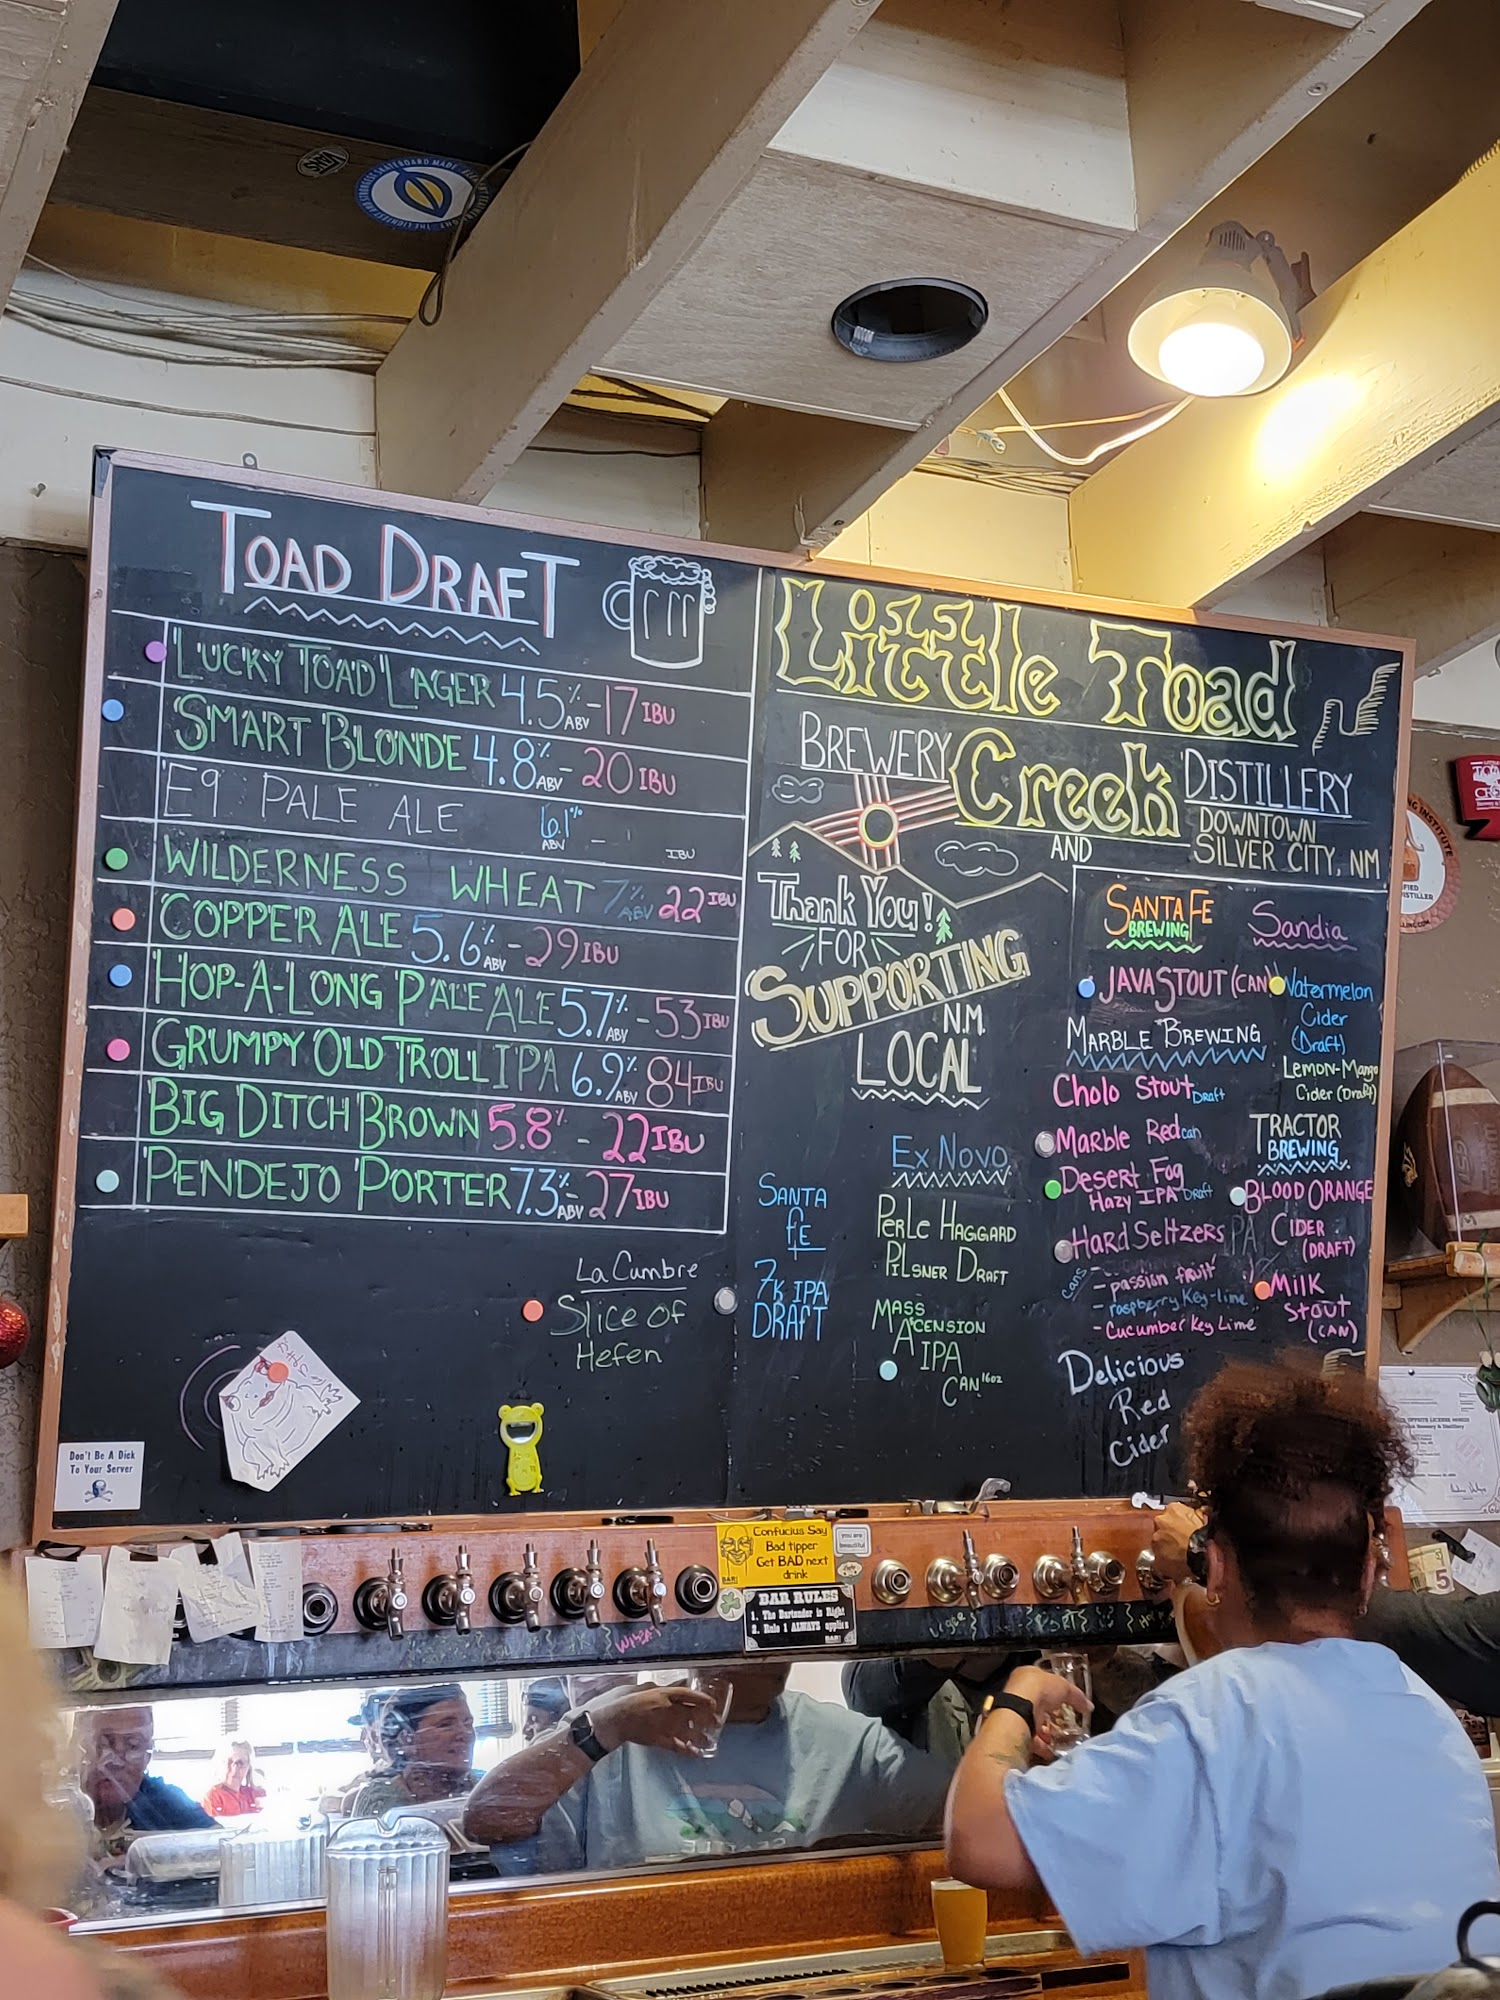 VANS
TOAD DRAFT
LUCKY TOAD LAGER 4.5% ABV - 17 IBU
SMART BLONDE 4.8% ABV - 20 IBU
E9 PALE ALE 6.1% ABV - IBU
WILDERNESS WHEAT 7% ABV 22 IBU
COPPER ALE 5.6% ABV - 29 IBU
HOP-A-LONG PALE ALE 5.7% ABV - 53 IBU
GRUMPY OLD TROLL IPA 6.9% ABV 84 IBU
BIG DITCH BROWN 5.8% - 22 IBU
PENDEJO PORTER 7.3% ABV - 27 IBU
La Cumbre
Slice of
Hefen
Don't Be A Dick
To Your Server
Little Toad
BREWERY Creek DISTILLERY
AND
DOWNTOWN
SILVER CITY, NM
Thank You!
FOR
SUPPORTING
N.M.
LOCAL
SANTA
FE
7K IPA
DRAFT
EX NOVO
PERLE HAGGARD
PILSNER DRAFT
MASS
ASCENSION
IPA
CAN 16oz
SANTA FE
BREWING
JAVA STOUT (CAN)
MARBLE BREWING
Cholo Stout Draft
Marble Red can
Desert Fog
Hazy IPA Draft
Hard Seltzers
cans
- passion fruit
- raspberry Key-lime
- Cucumber Key Lime
Delicious
Red
Cider
Sandia
Watermelon
Cider
(Draft)
Lemon-Mango
Cider (Draft)
TRACTOR
BREWING
BLOOD ORANGE
CIDER
(DRAFT)
Milk
Stout
(CAN)
Confucius Say
Bad tipper
Get BAD next
drink
BAR!
you are
beautiful
BAR RULES
1. The Bartender is Right
2. Rule 1 ALWAYS applies
BAR!
WHEAT
5